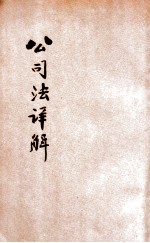 公司法详解